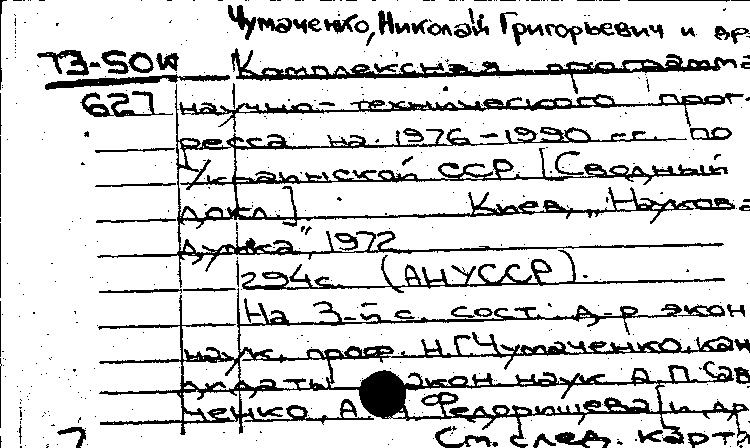 Чумаченко, Николай Григорьевич и др.
73-SOW Комплексная программа
627 научно-технического прог-
ресса на 1976-1990 гг. по
Украинской ССР. [Сводный
докл.] Киев, „Наукова
думка", 1972
294с. (АН УССР).
На 3-й с. сост.: д-р экон
наук, проф. Н.Г.Чумаченко, кан
дидаты экон наук А.П. Сав
ченко, А. Ф Федорищева и др
7 См. след. карт